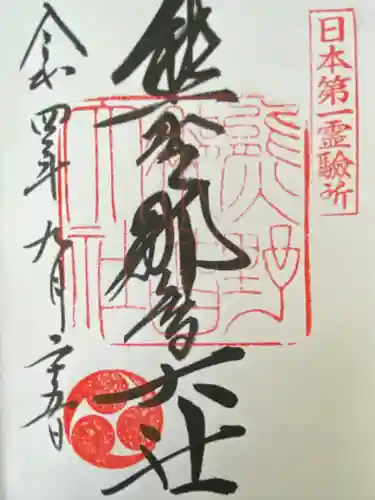 日本第一霊験所
熊野那智大社
熊野
那智
大社
令和四年九月二十五日